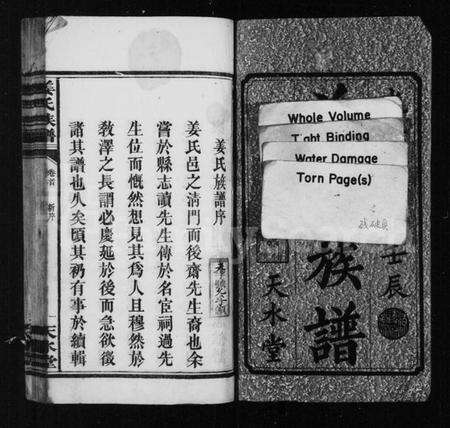 Whole Volume
Tight Binding
Water Damage
Torn Page(s)
壬辰
族譜
天水堂
姜氏族譜序
姜氏邑之清門而後齋先生裔也余
嘗於縣志讀先生傳於名宦祠過先
生位而慨然想見其為人且穆然於
教澤之長謂必慶延於後而急欲徵
諸其譜也久矣頃其礽有事於續輯
姜氏族譜
卷首
新序
天水堂